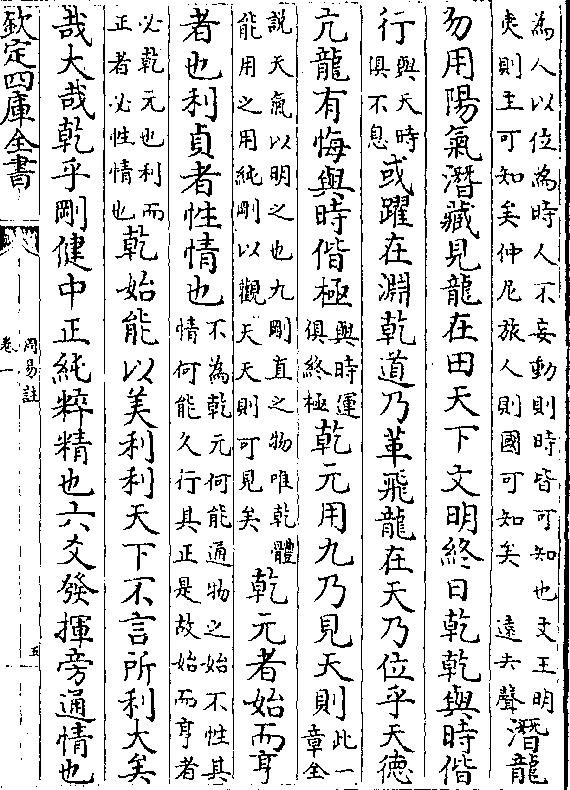 為人以位為時人不妄動則時皆可知也文王明
夷則主可知矣仲尼旅人則國可知矣 遠去聲
潛龍
勿用陽氣潛藏見龍在田天下文明終日乾乾與時偕
行
與天時
俱不息
或躍在淵乾道乃革飛龍在天乃位乎天德
亢龍有悔與時偕極
與時運
俱終極
乾元用九乃見天則
此一
章全
說天氣以明之也九剛直之物唯乾體
能用之用純剛以觀天天則可見矣
乾元者始而亨
者也利貞者性情也
不為乾元何能通物之始不性其
情何能久行其正是故始而亨者
必乾元也利而
正者必性情也
乾始能以美利利天下不言所利大矣
哉大哉乾乎剛健中正純粹精也六爻發揮旁通情也
欽定四庫全書
周易註
卷一
五